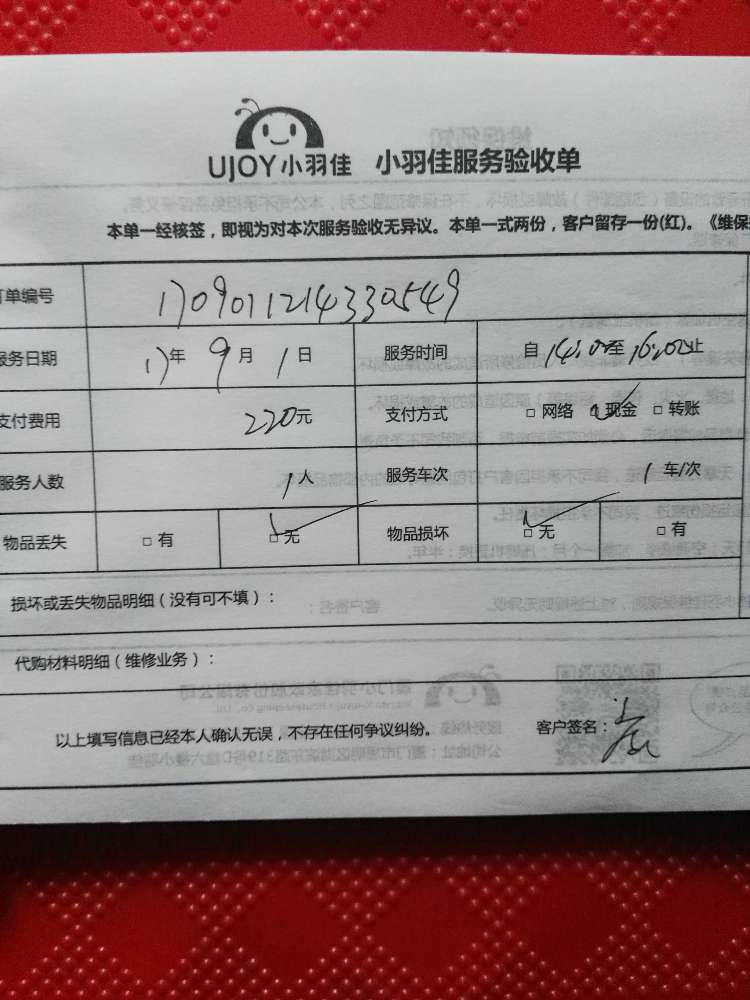 UJOY小羽佳 小羽佳服务验收单
本单一经核签，即视为对本次服务验收无异议。本单一式两份，客户留存一份(红)。《维保
订单编号 1709011214330549
服务日期 17年9月1日 服务时间 自14:00至16:00止
支付费用 220元 支付方式 □网络 □现金 □转账
服务人数 1人 服务车次 1车/次
物品丢失 □有 □无 物品损坏 □无 □有
损坏或丢失物品明细（没有可不填）：
代购材料明细（维修业务）：
以上填写信息已经本人确认无误，不存在任何争议纠纷。 客户签名：